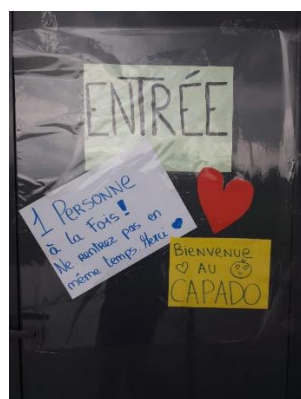 ENTRÉE
1 PERSONNE
à la Fois !
Ne rentrez pas en
même temps. Merci
BIENVENUE
AU
CAPADO